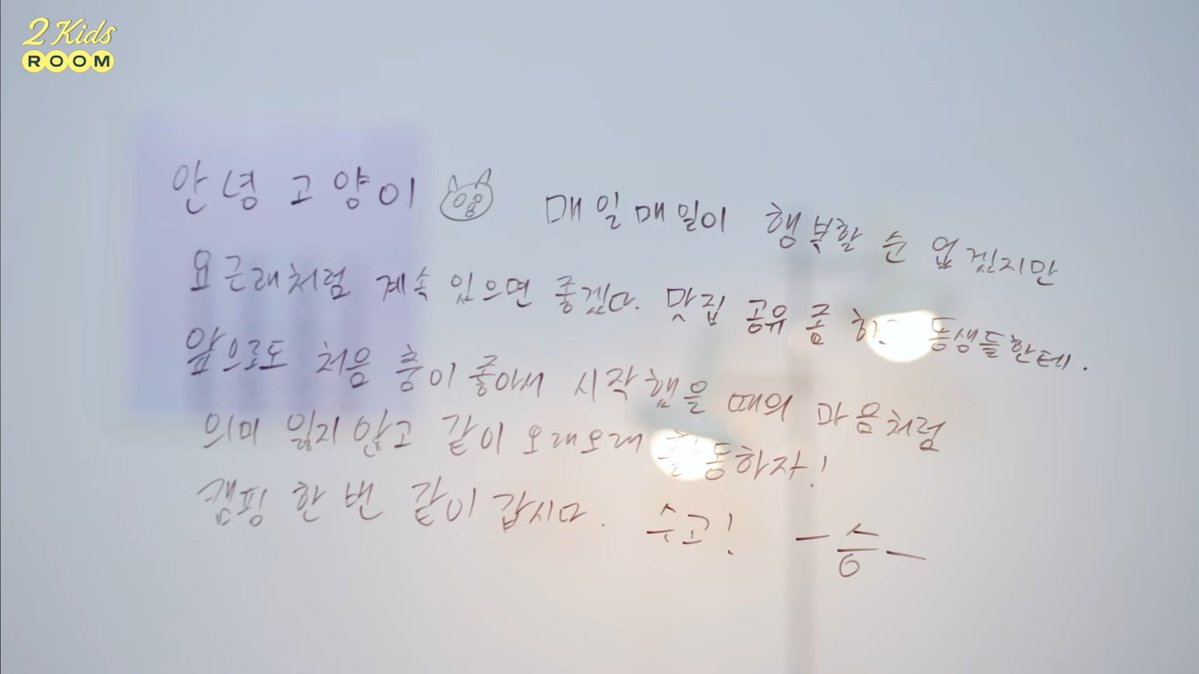 2 Kids
ROOM
안녕 고양이 매일매일이 행복할 순 없겠지만
요근래처럼 계속 있으면 좋겠다. 맛집 공유 좀 동생들한테.
앞으로도 처음 춤이 좋아서 시작했을 때의 마음처럼
의미 잃지 않고 같이 오래오래 활동하자!
캠핑 한 번 같이 갑시다. 수고! -승-